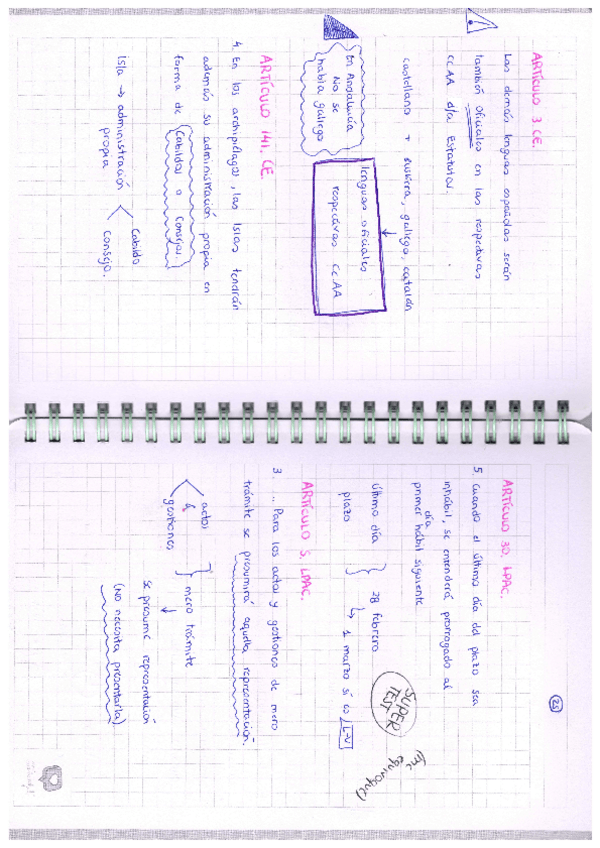 ARTÍCULO 3 CE.
Las demás lenguas españolas serán
también oficiales en las respectivas
CCAA d/a Estatutos.
castellano + euskera, gallego, catalán
lenguas oficiales
respectivas CCAA
En Andalucía
No se
habla gallego
ARTÍCULO 141. CE.
4. En los archipiélagos, las islas tendrán
además su administración propia en
forma de Cabildos o Consejos.
isla → administración
propia
Cabildo
Consejo.
25
ARTÍCULO 30. LPAC.
5 Cuando el último día del plazo sea
inhábil, se entenderá prorrogado al
primer día hábil siguiente
último día
plazo
28 febrero
↳ 1 marzo si es L-V
SUPER
TEST
(me
equivoqué)
ARTÍCULO 5. LPAC.
3. ... Para los actos y gestiones de mero
trámite se presumirá aquella representación.
actos
&
gestiones
mero trámite
se presume representación
(No necesita presentarla)